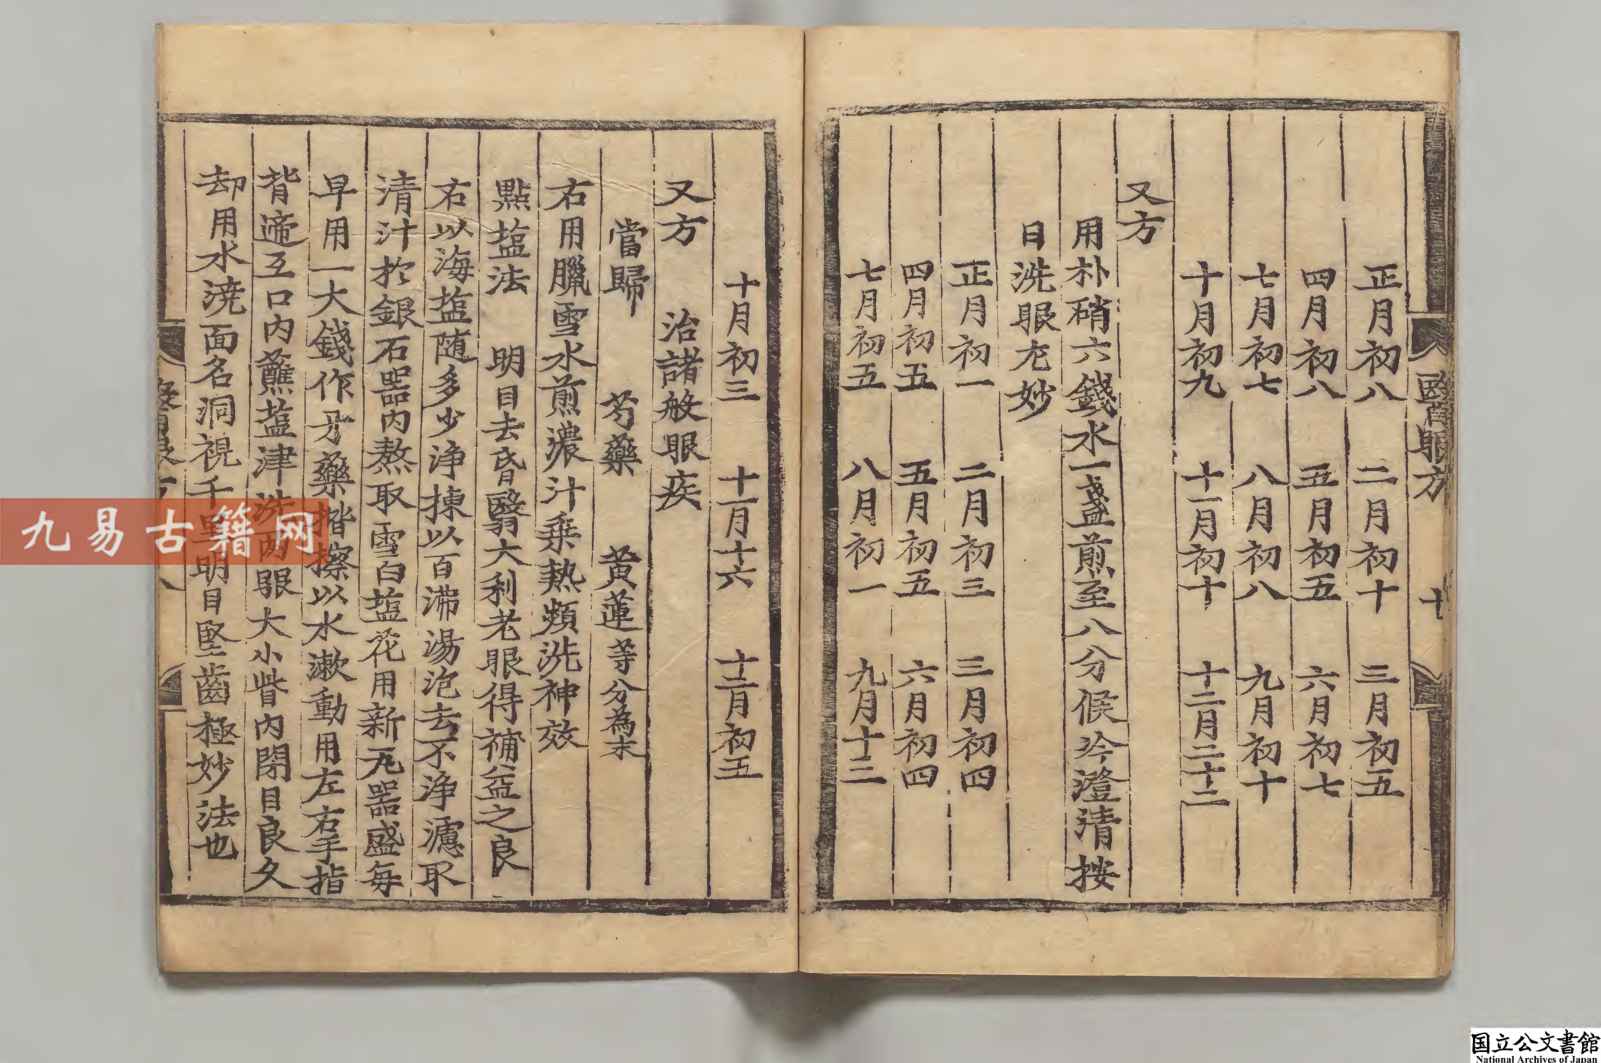 正月初八 二月初十 三月初五
四月初八 五月初五 六月初七
七月初七 八月初八 九月初十
十月初九 十一月初十 十二月二十二
又方
用朴硝六錢水一盞煎至八分候冷澄清按
日洗眼尤妙
正月初一 二月初三 三月初四
四月初五 五月初五 六月初四
七月初五 八月初一 九月十三
十月初三 十一月十六 十二月初五
又方 治諸般眼疾
當歸 芍藥 黄蓮等分為末
右用臘雪水煎濃汁乗熱頻洗神效
點塩法 明目去昏翳大利老眼得補益之良
右以海塩随多少浄揀以百沸湯泡去不浄濾取
清汁於銀石器内熬取雪白塩花用新瓦器盛每
早用一大錢作牙藥揩擦以水漱動用左右手指
背遞互口内蘸塩津洗两眼大小眥内閉目良久
却用水澆面名洞視千里明目堅齒極妙法也
醫眼方
十
九易古籍网
国立公文書館
National Archives of Japan